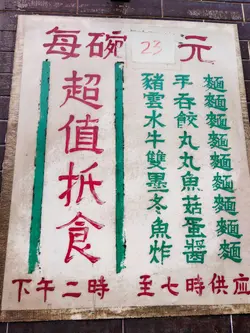 每碗 23 元
超值抵食
豬手麵
雲吞麵
水餃麵
牛丸麵
雙丸麵
墨魚麵
冬菇麵
魚蛋麵
炸醬麵
下午二時 至七時供应